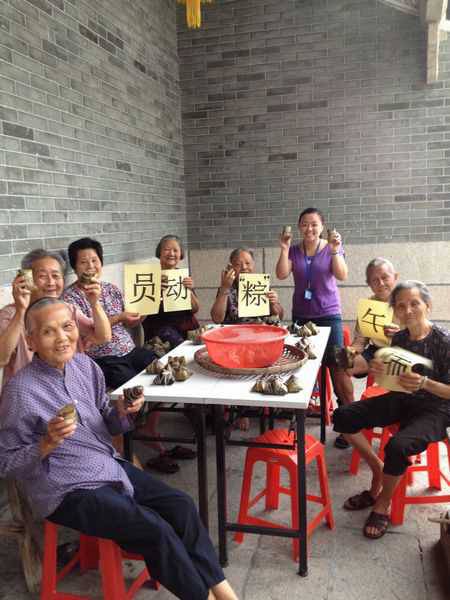 午
“粽”
动
员